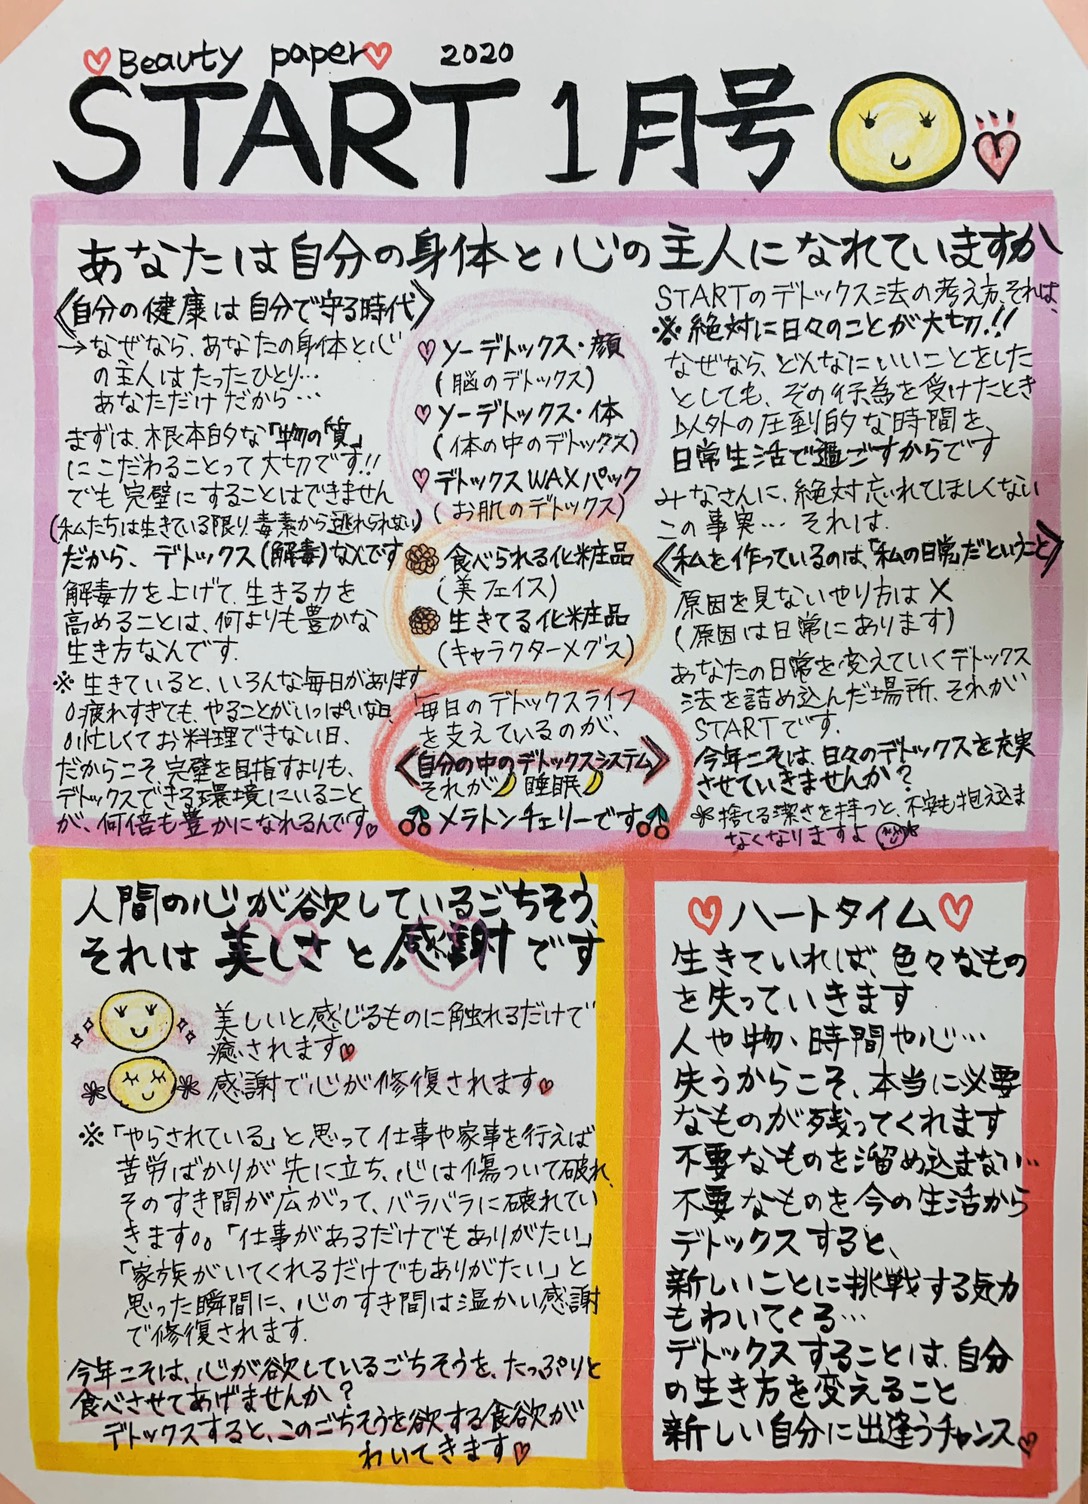 Beauty paper 2020
START 1月号
あなたは自分の身体と心の主人になれていますか
《自分の健康は自分で守る時代》
→なぜなら、あなたの身体と心
の主人はたったひとり…
あなただけだから…
まずは、根本的な「物の質」
にこだわることって大切です!!
でも完璧にすることはできません
(私たちは生きている限り、毒素から逃れられない)
だから、デトックス(解毒)なんです
解毒力を上げて、生きる力を
高めることは、何よりも豊かな
生き方なんです.
※生きていると、いろんな毎日があります
疲れすぎても、やることがいっぱいな日、
忙しくてお料理できない日、
だからこそ、完璧を目指すよりも、
デトックスできる環境にいること
が、何倍も豊かになれるんです。
ソーデトックス・顔
(脳のデトックス)
ソーデトックス・体
(体の中のデトックス)
デトックスWAXパック
(お肌のデトックス)
食べられる化粧品
(美フェイス)
生きてる化粧品
(キャラクターメグス)
毎日のデトックスライフ
を支えているのが、
《自分の中のデトックスシステム》
それが睡眠
メラトンチェリーです
STARTのデトックス法の考え方、それは、
※絶対に日々のことが大切!!
なぜなら、どんなにいいことをした
としても、その行為を受けたとき
以外の圧倒的な時間を、
日常生活で過ごすからです
みなさんに、絶対忘れてほしくない
この事実… それは、
《私を作っているのは、「私の日常」だということ》
原因を見ないやり方は×
(原因は日常にあります)
あなたの日常を変えていくデトックス
法を詰め込んだ場所、それが
STARTです.
今年こそは、日々のデトックスを充実
させていきませんか?
捨てる潔さを持つと、不安も抱え込ま
なくなりますよ
人間の心が欲しているごちそう、
それは美しさと感謝です
美しいと感じるものに触れるだけで
癒されます
感謝で心が修復されます
※「やらされている」と思って仕事や家事を行えば
苦労ばかりが先に立ち、心は傷ついて破れ、
そのすき間が広がって、バラバラに破れてい
きます。。「仕事があるだけでもありがたい」
「家族がいてくれるだけでもありがたい」と
思った瞬間に、心のすき間は温かい感謝
で修復されます.
今年こそは、心が欲しているごちそうを、たっぷりと
食べさせてあげませんか?
デトックスすると、このごちそうを欲する食欲が
わいてきます
ハートタイム
生きていれば、色々なもの
を失っていきます
人や物、時間や心…
失うからこそ、本当に必要
なものが残ってくれます
不要なものを溜め込まない…
不要なものを今の生活から
デトックスすると、
新しいことに挑戦する気力
もわいてくる…
デトックスすることは、自分
の生き方を変えること
新しい自分に出逢うチャンス。